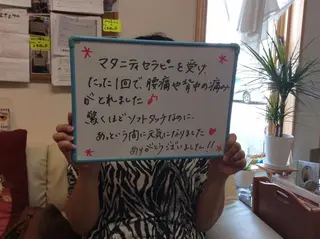 マタニティセラピーを受け、
たった1回で、腰痛や背中の痛み
がとれました♪
驚くほどソフトタッチなのに、
あっという間に元気になりました♥
ありがとうございました!!